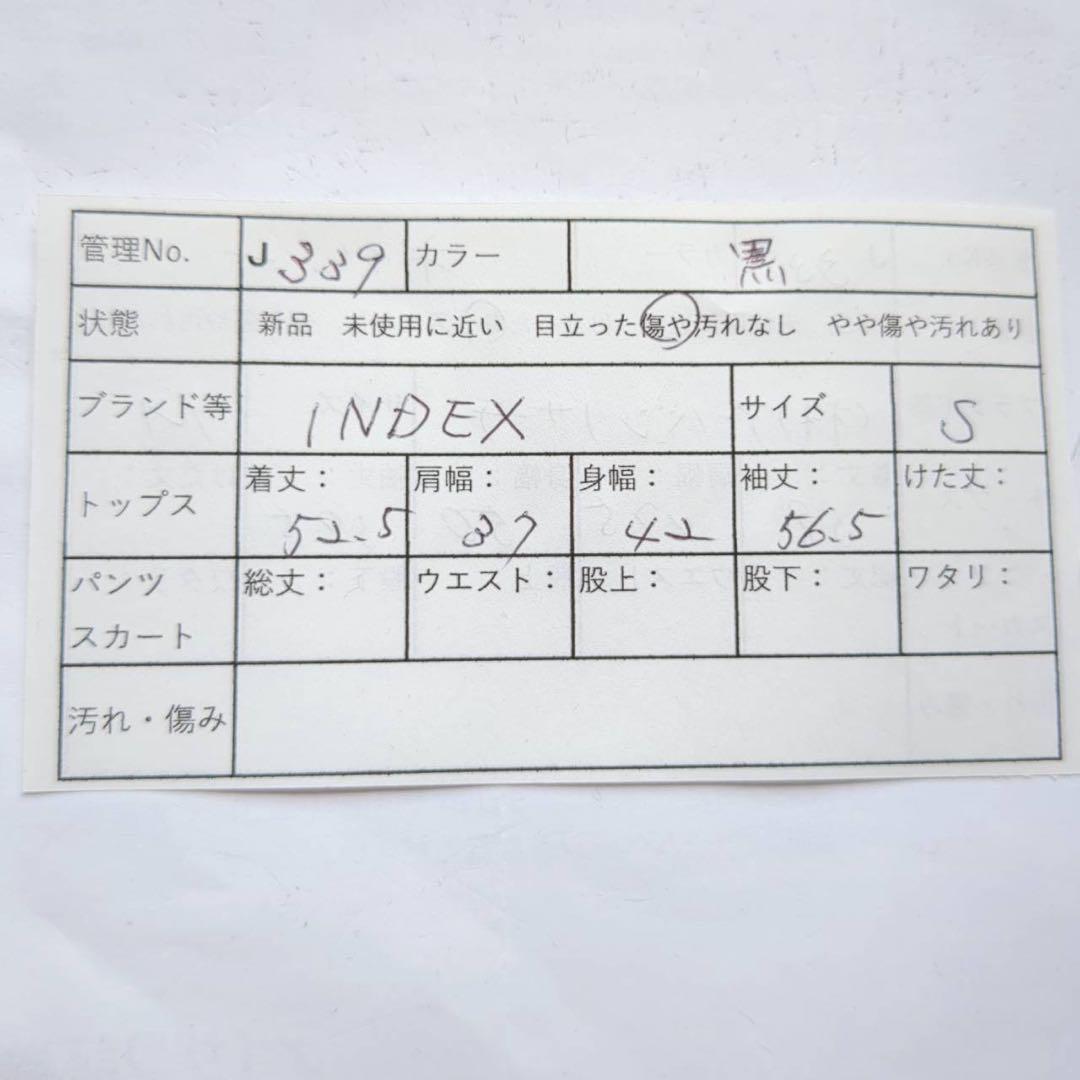 管理No. J 339 カラー 黒
状態 新品 未使用に近い 目立った傷や汚れなし やや傷や汚れあり
ブランド等 INDEX サイズ S
トップス 着丈： 肩幅： 身幅： 袖丈： けた丈：
52.5 37 42 56.5
パンツ 総丈： ウエスト： 股上： 股下： ワタリ：
スカート
汚れ・傷み